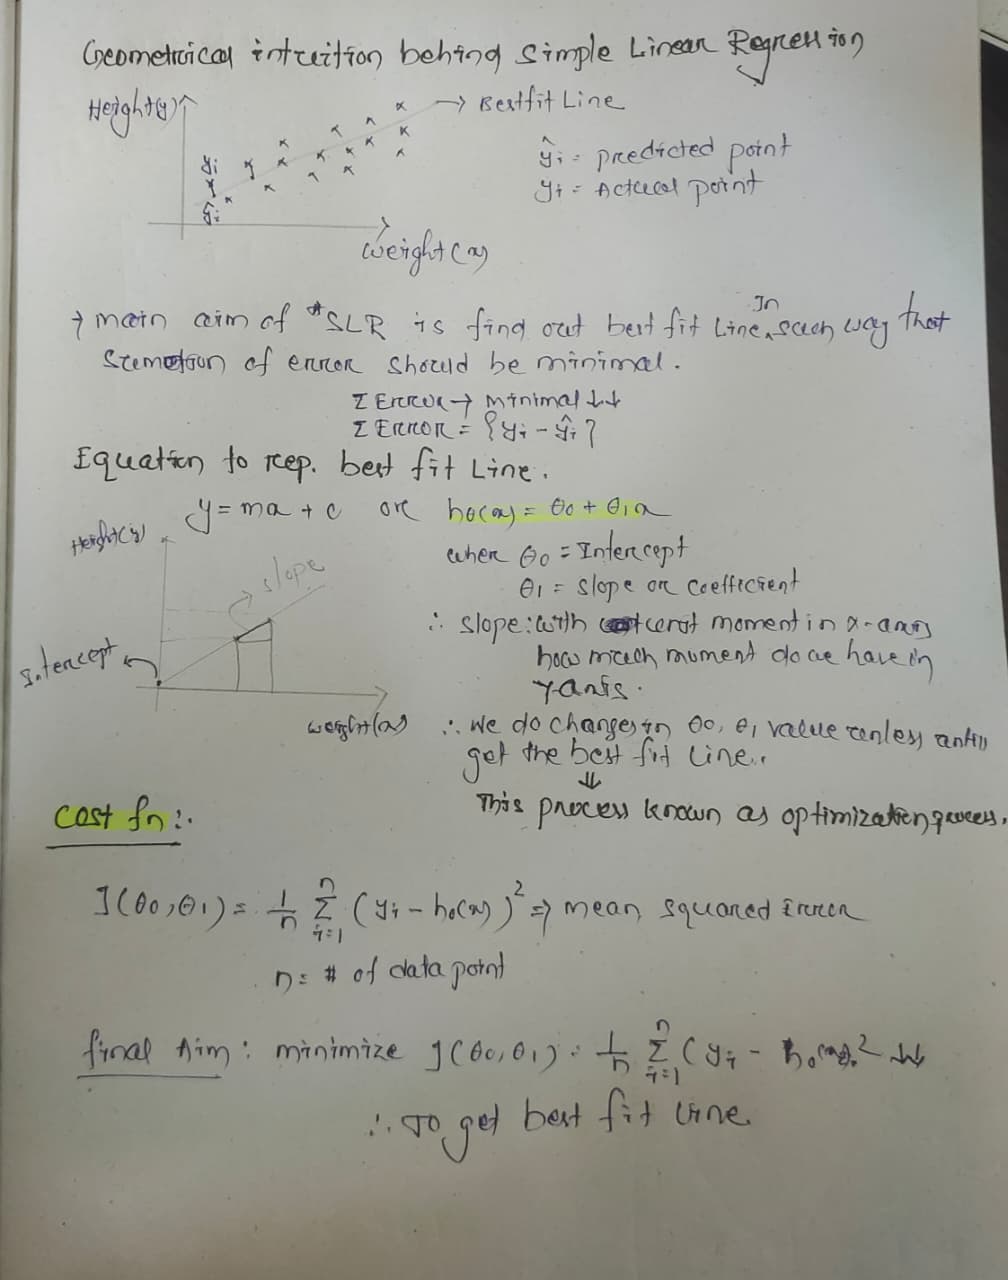 Geometrical intuition behind Simple Linear Regression
Height(y)
→ Bestfit Line
yi
ŷi
Weight(x)
ŷi = predicted point
yi = Actual point
→ main aim of *SLR is find out best fit Line, In such way that
Summation of error should be minimal.
Σ Error → minimal ↓↓
Σ Error = {yi - ŷi}
Equation to rep. best fit Line.
y = mx + c or hθ(x) = θ0 + θ1x
Height(y)
slope
Intercept
weight(x)
when θ0 = Intercept
θ1 = slope or Coefficient
∴ slope: with moment in x-axis
how much moment do we have in
Y-axis.
∴ we do changes in θ0, θ1 value unless until
get the best fit Line..
⇓
This process known as optimization process.
Cost fn:.
J(θ0,θ1) = 1/n Σ(i=1 to n) (yi - hθ(x))² ⇒ mean squared Error
n = # of data point
final Aim: minimize J(θ0,θ1) = 1/n Σ(i=1 to n) (yi - hθ(x))² ↓↓
∴ To get best fit line